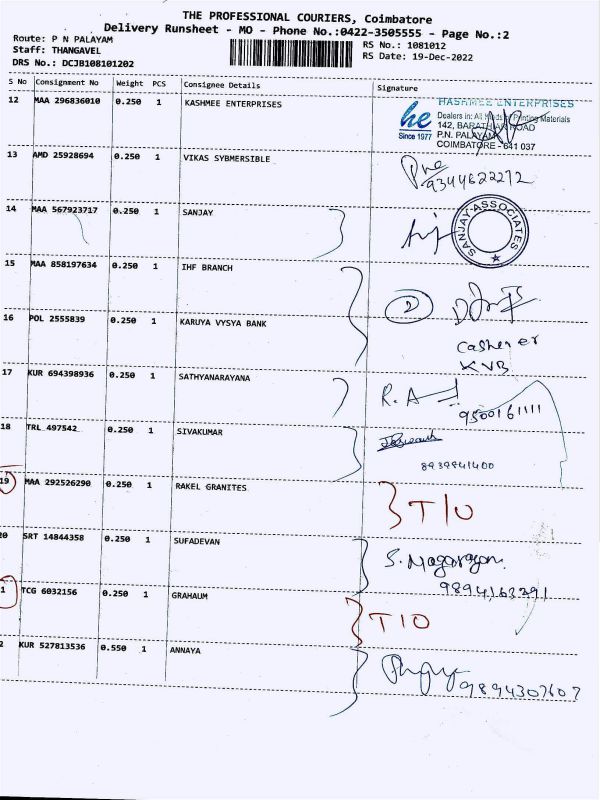 THE PROFESSIONAL COURIERS, Coimbatore
Delivery Runsheet - MO - Phone No.:0422-3505555 - Page No.:2
Route: P N PALAYAM
RS No.: 1081012
Staff: THANGAVEL
RS Date: 19-Dec-2022
DRS No.: DCJB108101202
S No Consignment No Weight PCS Consignee Details Signature
12 MAA 296836010 0.250 1 KASHMEE ENTERPRISES
HASHMEE ENTERPRISES
he Dealers in: All Kinds of Printing Materials
142, BARATHIAR ROAD
Since 1977 P.N. PALAYAM
COIMBATORE - 641 037
13 AMD 25928694 0.250 1 VIKAS SYBMERSIBLE
9344622272
14 MAA 567923717 0.250 1 SANJAY
SANJAY ASSOCIATES
15 MAA 858197634 0.250 1 IHF BRANCH
2
16 POL 2555839 0.250 1 KARUYA VYSYA BANK
Casher er
KVB
17 KUR 694398936 0.250 1 SATHYANARAYANA
R.A
9500161111
18 TRL 497542 0.250 1 SIVAKUMAR
8939941400
19 MAA 292526290 0.250 1 RAKEL GRANITES
T/O
20 SRT 14844358 0.250 1 SUFADEVAN
S. Nagarajan
9894163391
1 TCG 6032156 0.250 1 GRAHAUM
T/O
2 KUR 527813536 0.550 1 ANNAYA
9894307607